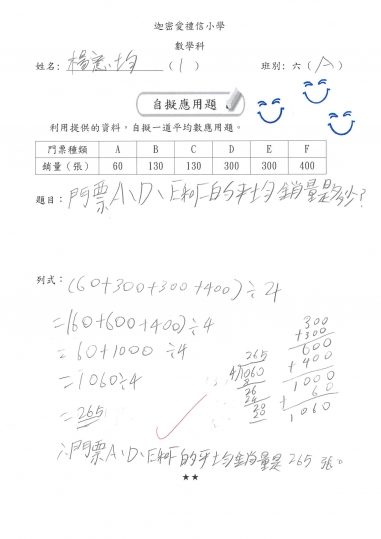 迦密愛禮信小學
數學科
姓名：楊 均（1） 班別：六（A）
自擬應用題
利用提供的資料，自擬一道平均數應用題。
門票種類 A B C D E F
銷量（張） 60 130 130 300 300 400
題目：門票A、D、E和F的平均銷量是多少？
列式：(60+300+300+400)÷4
=(60+600+400)÷4
=60+1000÷4
=1060÷4
=265
265
4√1060
8
26
24
20
20
300
+300
600
+400
1000
+60
1060
∴門票A、D、E和F的平均銷量是265張。
★★